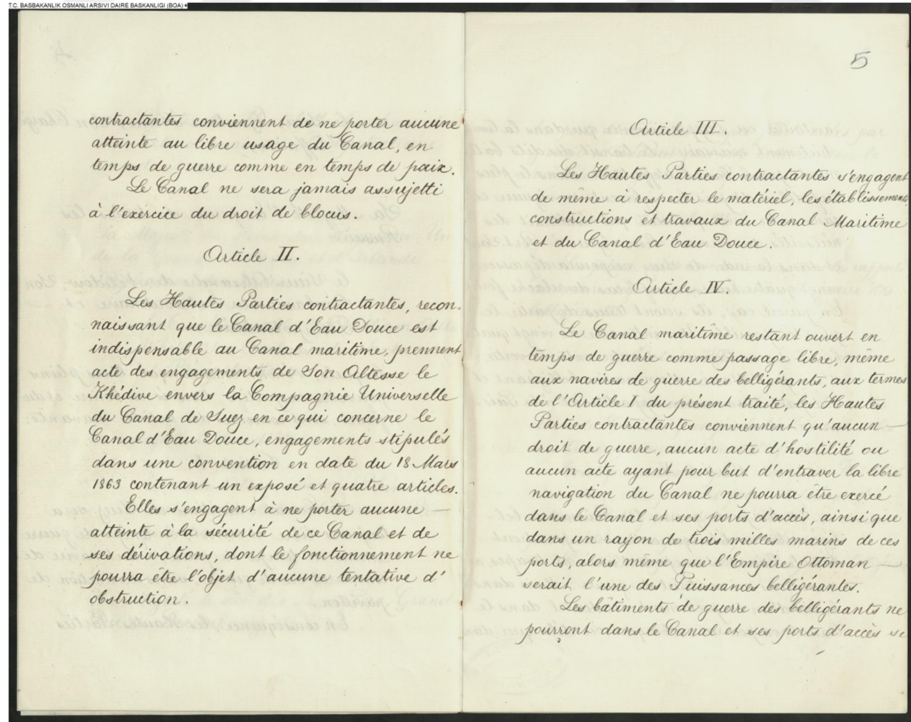 T.C. BASBAKANLIK OSMANLI ARSIVI DAIRE BASKANLIGI (BOA)
contractantes conviennent de ne porter aucune
atteinte au libre usage du Canal, en
temps de guerre comme en temps de paix.
Le Canal ne sera jamais assujetti
à l'exercice du droit de blocus.
Article II.
Les Hautes Parties contractantes, recon-
naissant que le Canal d'Eau Douce est
indispensable au Canal maritime, prennent
acte des engagements de Son Altesse le
Khédive envers la Compagnie Universelle
du Canal de Suez en ce qui concerne le
Canal d'Eau Douce, engagements stipulés
dans une convention en date du 18 Mars
1863 contenant un exposé et quatre articles.
Elles s'engagent à ne porter aucune —
atteinte à la sécurité de ce Canal et de
ses dérivations, dont le fonctionnement ne
pourra être l'objet d'aucune tentative d'
obstruction.
5
Article III.
Les Hautes Parties contractantes s'engagent
de même à respecter le matériel, les établissemen
constructions et travaux du Canal Maritime
et du Canal d'Eau Douce.
Article IV.
Le Canal maritime restant ouvert en
temps de guerre comme passage libre, même
aux navires de guerre des belligérants, aux termes
de l'Article I du présent traité, les Hautes
Parties contractantes conviennent qu'aucun —
droit de guerre, aucun acte d'hostilité ou
aucun acte ayant pour but d'entraver la libre
navigation du Canal ne pourra être exercé
dans le Canal et ses ports d'accès, ainsi que
dans un rayon de trois milles marins de ces
ports, alors même que l'Empire Ottoman —
serait l'une des Puissances belligérantes.
Les bâtiments de guerre des belligérants ne
pourront dans le Canal et ses ports d'accès se